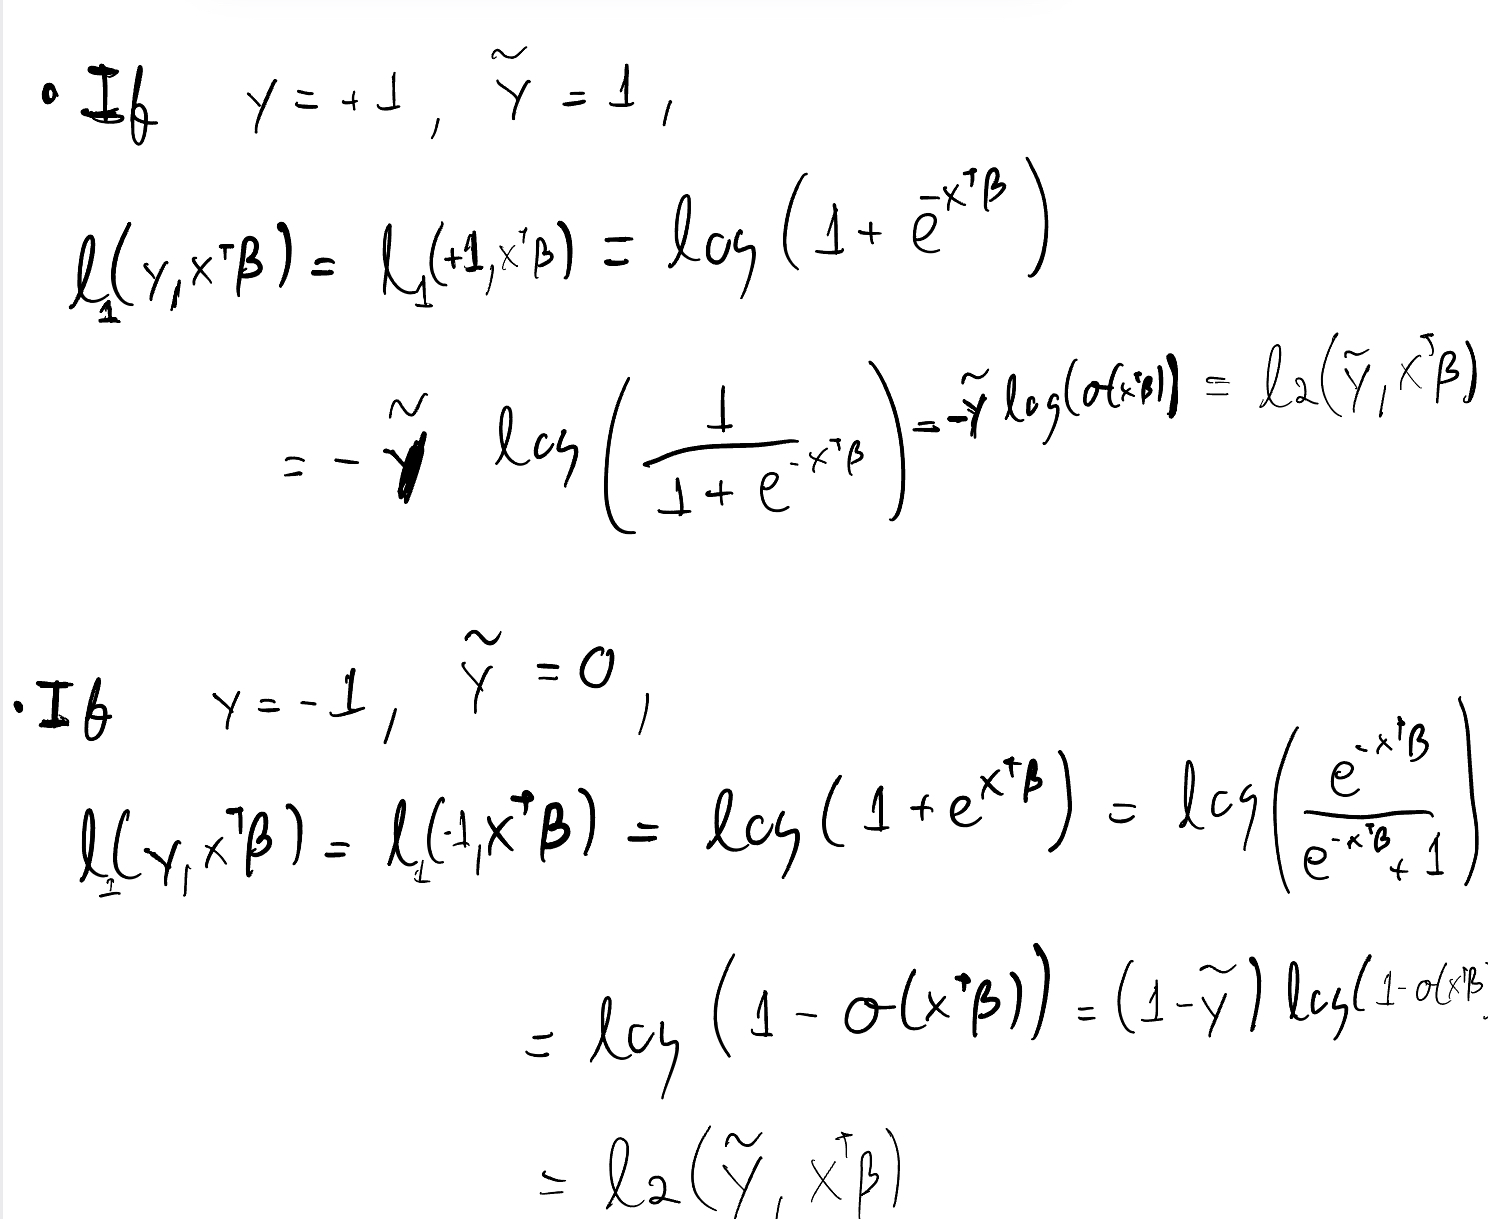 • If y = +1, ỹ = 1,
l₁(y, xᵀβ) = l₁(+1, xᵀβ) = log(1 + e^{-xᵀβ})
= - ỹ log(1/(1 + e^{-xᵀβ})) = -ỹ log(σ(xᵀβ)) = l₂(ỹ, xᵀβ)
• If y = -1, ỹ = 0,
l₁(y, xᵀβ) = l₁(-1, xᵀβ) = log(1 + e^{xᵀβ}) = log(e^{-xᵀβ}/(e^{-xᵀβ} + 1))
= log(1 - σ(xᵀβ)) = (1 - ỹ) log(1 - σ(xᵀβ)
= l₂(ỹ, xᵀβ)